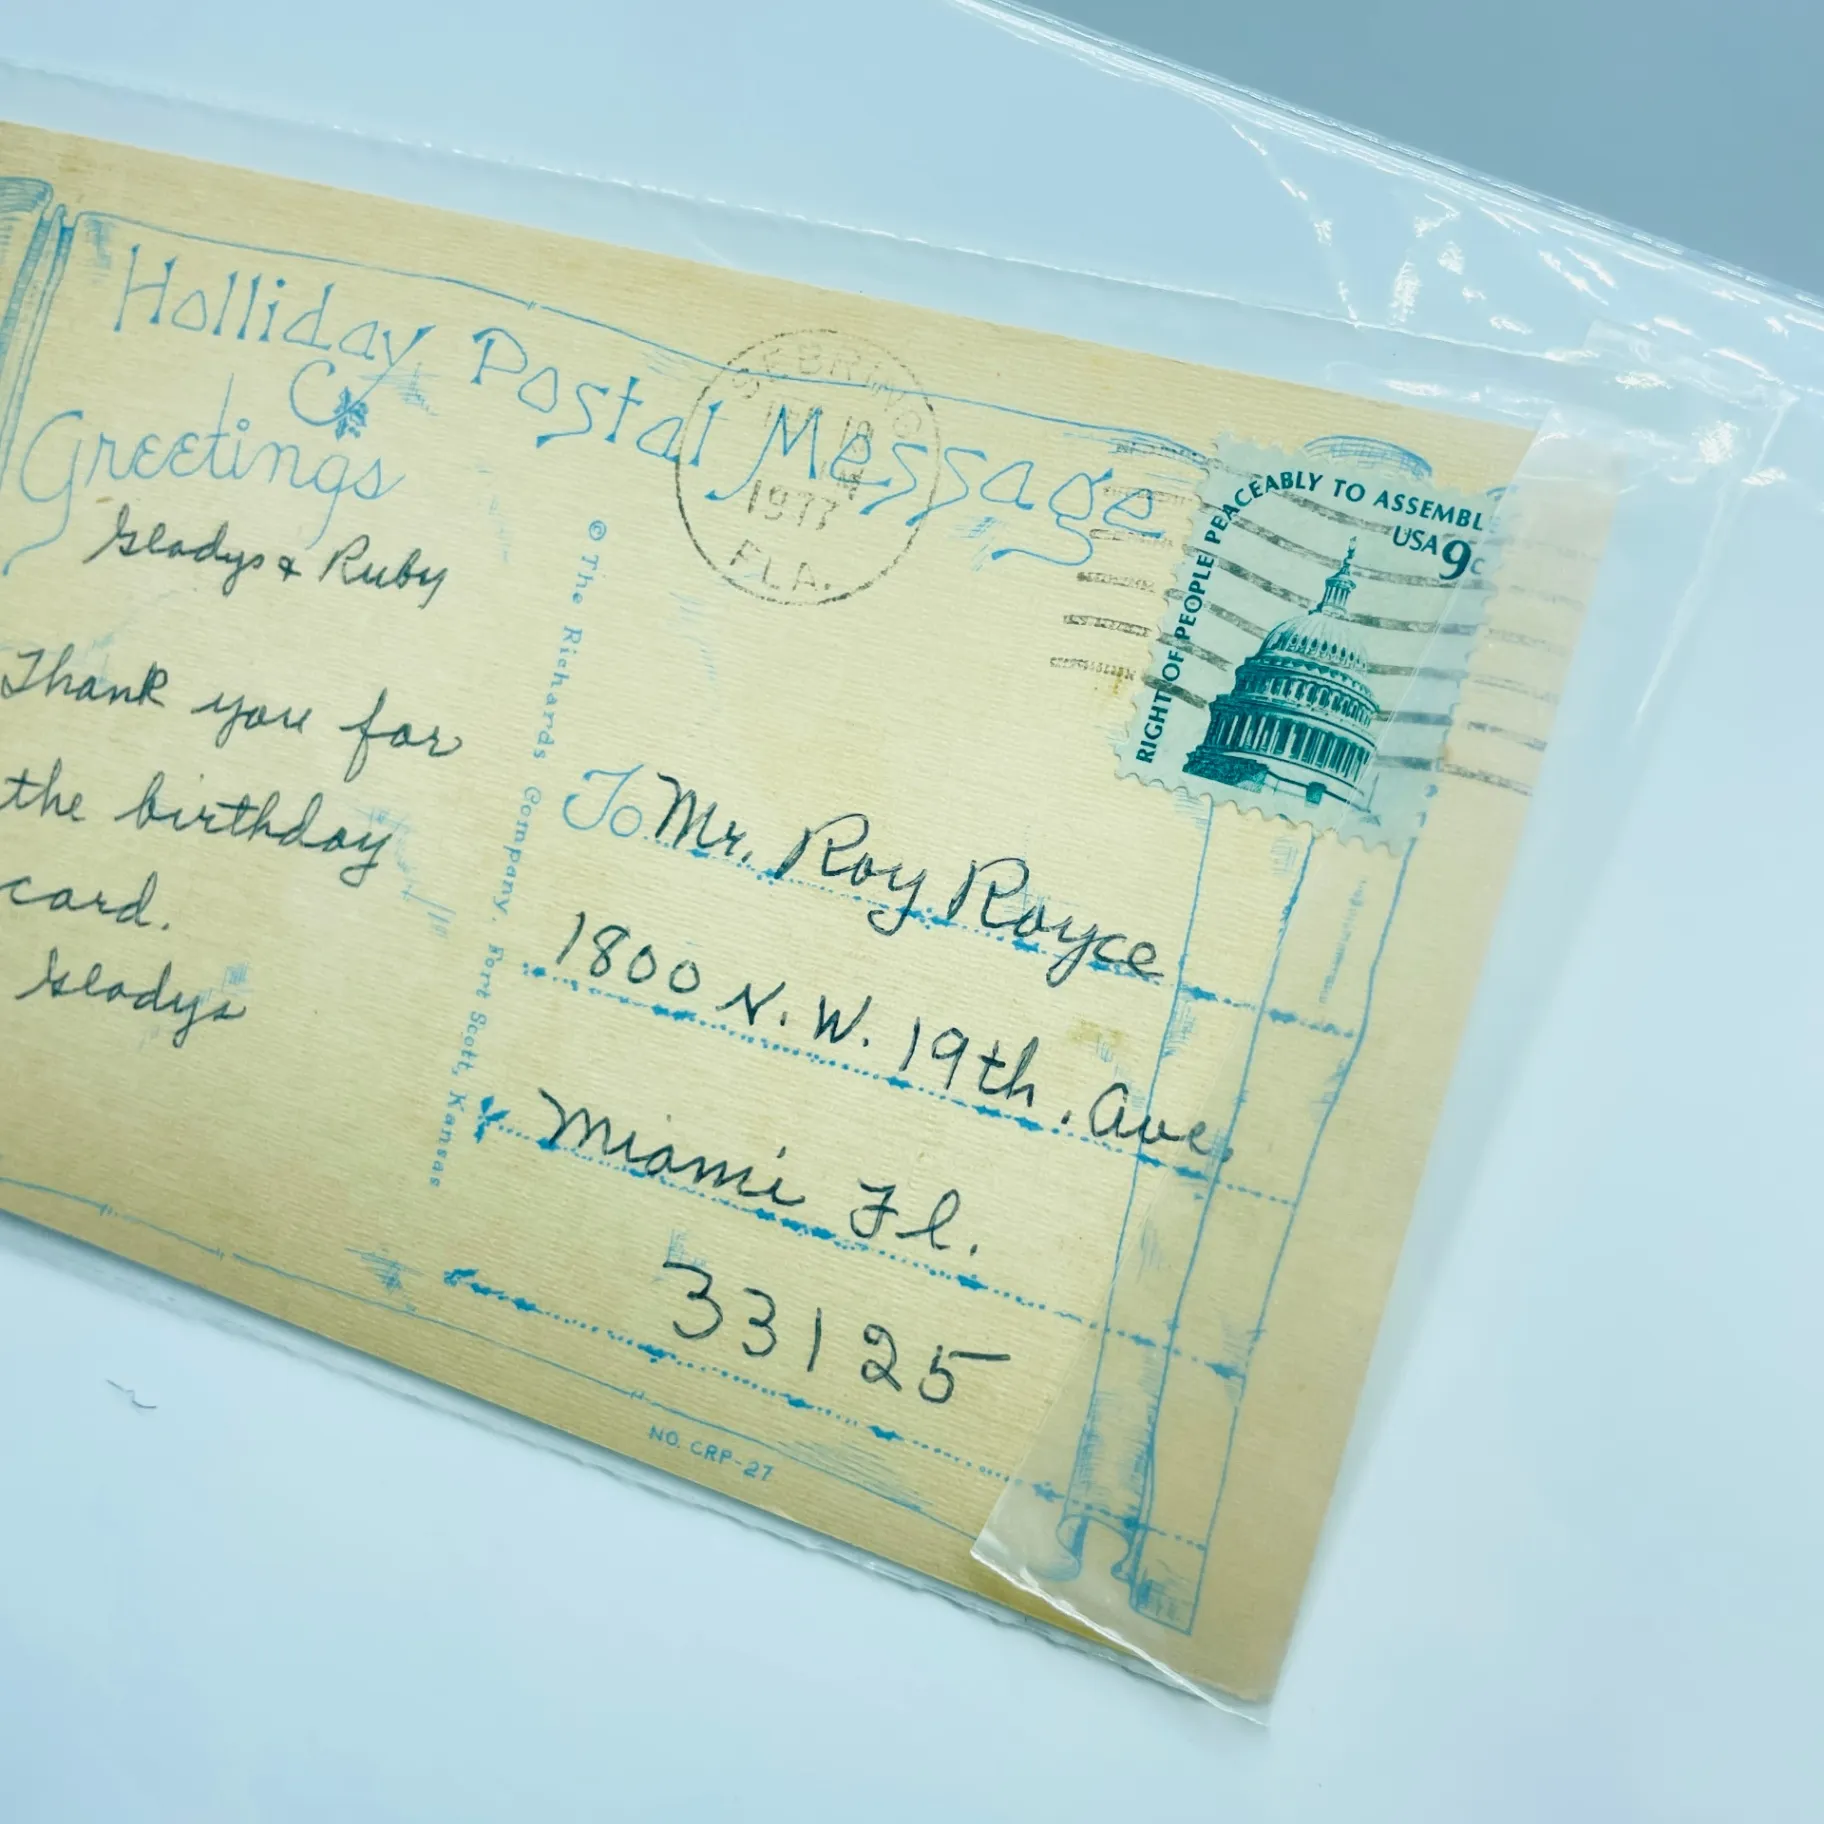 Holliday Postal Message
Greetings
Gladys & Ruby
Thank you for
the birthday
card.
Gladys
© The Richards Company, Fort Scott, Kansas
SEBRING
18
PM
1977
FLA.
RIGHT OF PEOPLE PEACEABLY TO ASSEMBLE
USA 9c
To Mr. Roy Royce
1800 N.W. 19th. Ave.
Miami Fl.
33125
NO. CRP-27